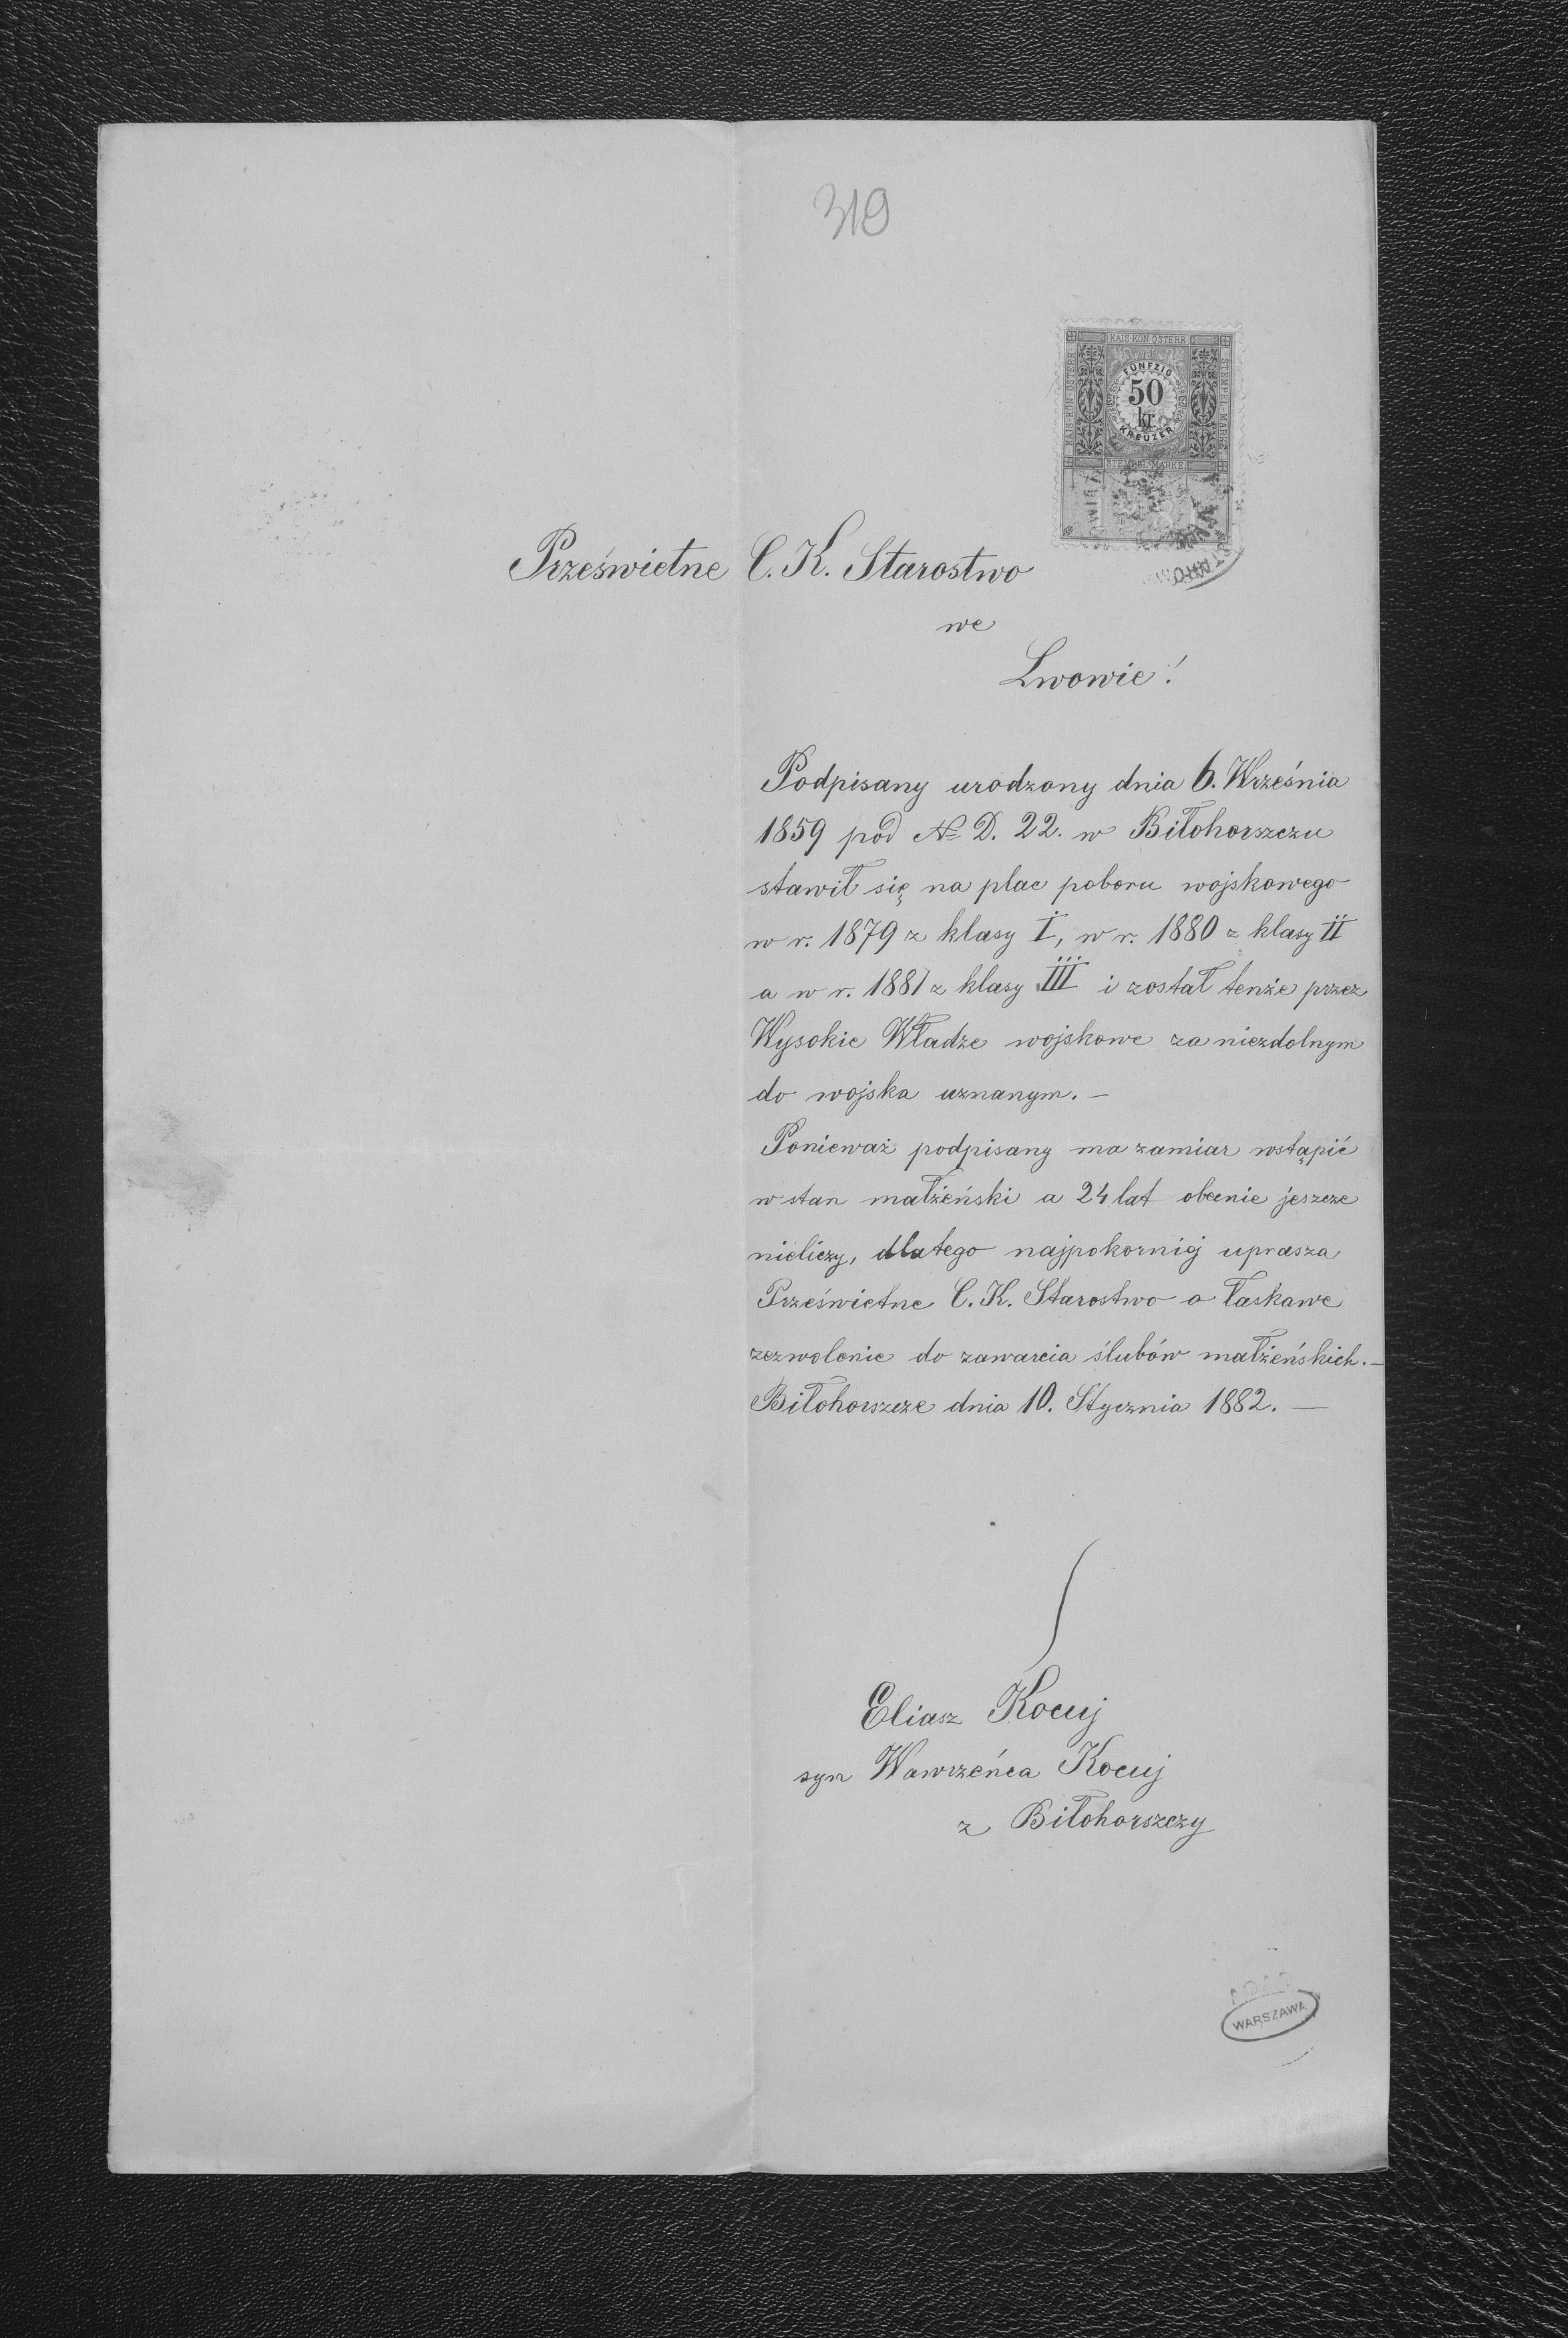 319
KAIS. KÖN. ÖSTERR.
KAIS. KÖN. ÖSTERR.
STEMPEL MARKE
FÜNFZIG
50
kr.
KREUZER
STEMPEL MARKE
Prześwietne C. K. Starostwo
we
Lwowie!
Podpisany urodzony dnia 6. Września
1859 pod № D. 22. w Biłohorszczu
stawił się na plac poboru wojskowego
w r. 1879 z klasy I, w r. 1880 z klasy II
a w r. 1881 z klasy III i został tenże przez
Wysokie Władze wojskowe za niezdolnym
do wojska uznanym. —
Ponieważ podpisany ma zamiar wstąpić
w stan małżeński a 24 lat obecnie jeszcze
nieliczy, dlatego najpokorniej uprasza
Prześwietne C. K. Starostwo o łaskawe
zezwolenie do zawarcia ślubów małżeńskich. —
Biłohorszcze dnia 10. Stycznia 1882. —
Eliasz Kocuj
syn Wawrzeńca Kocuj
z Biłohorszczy
WARSZAWA